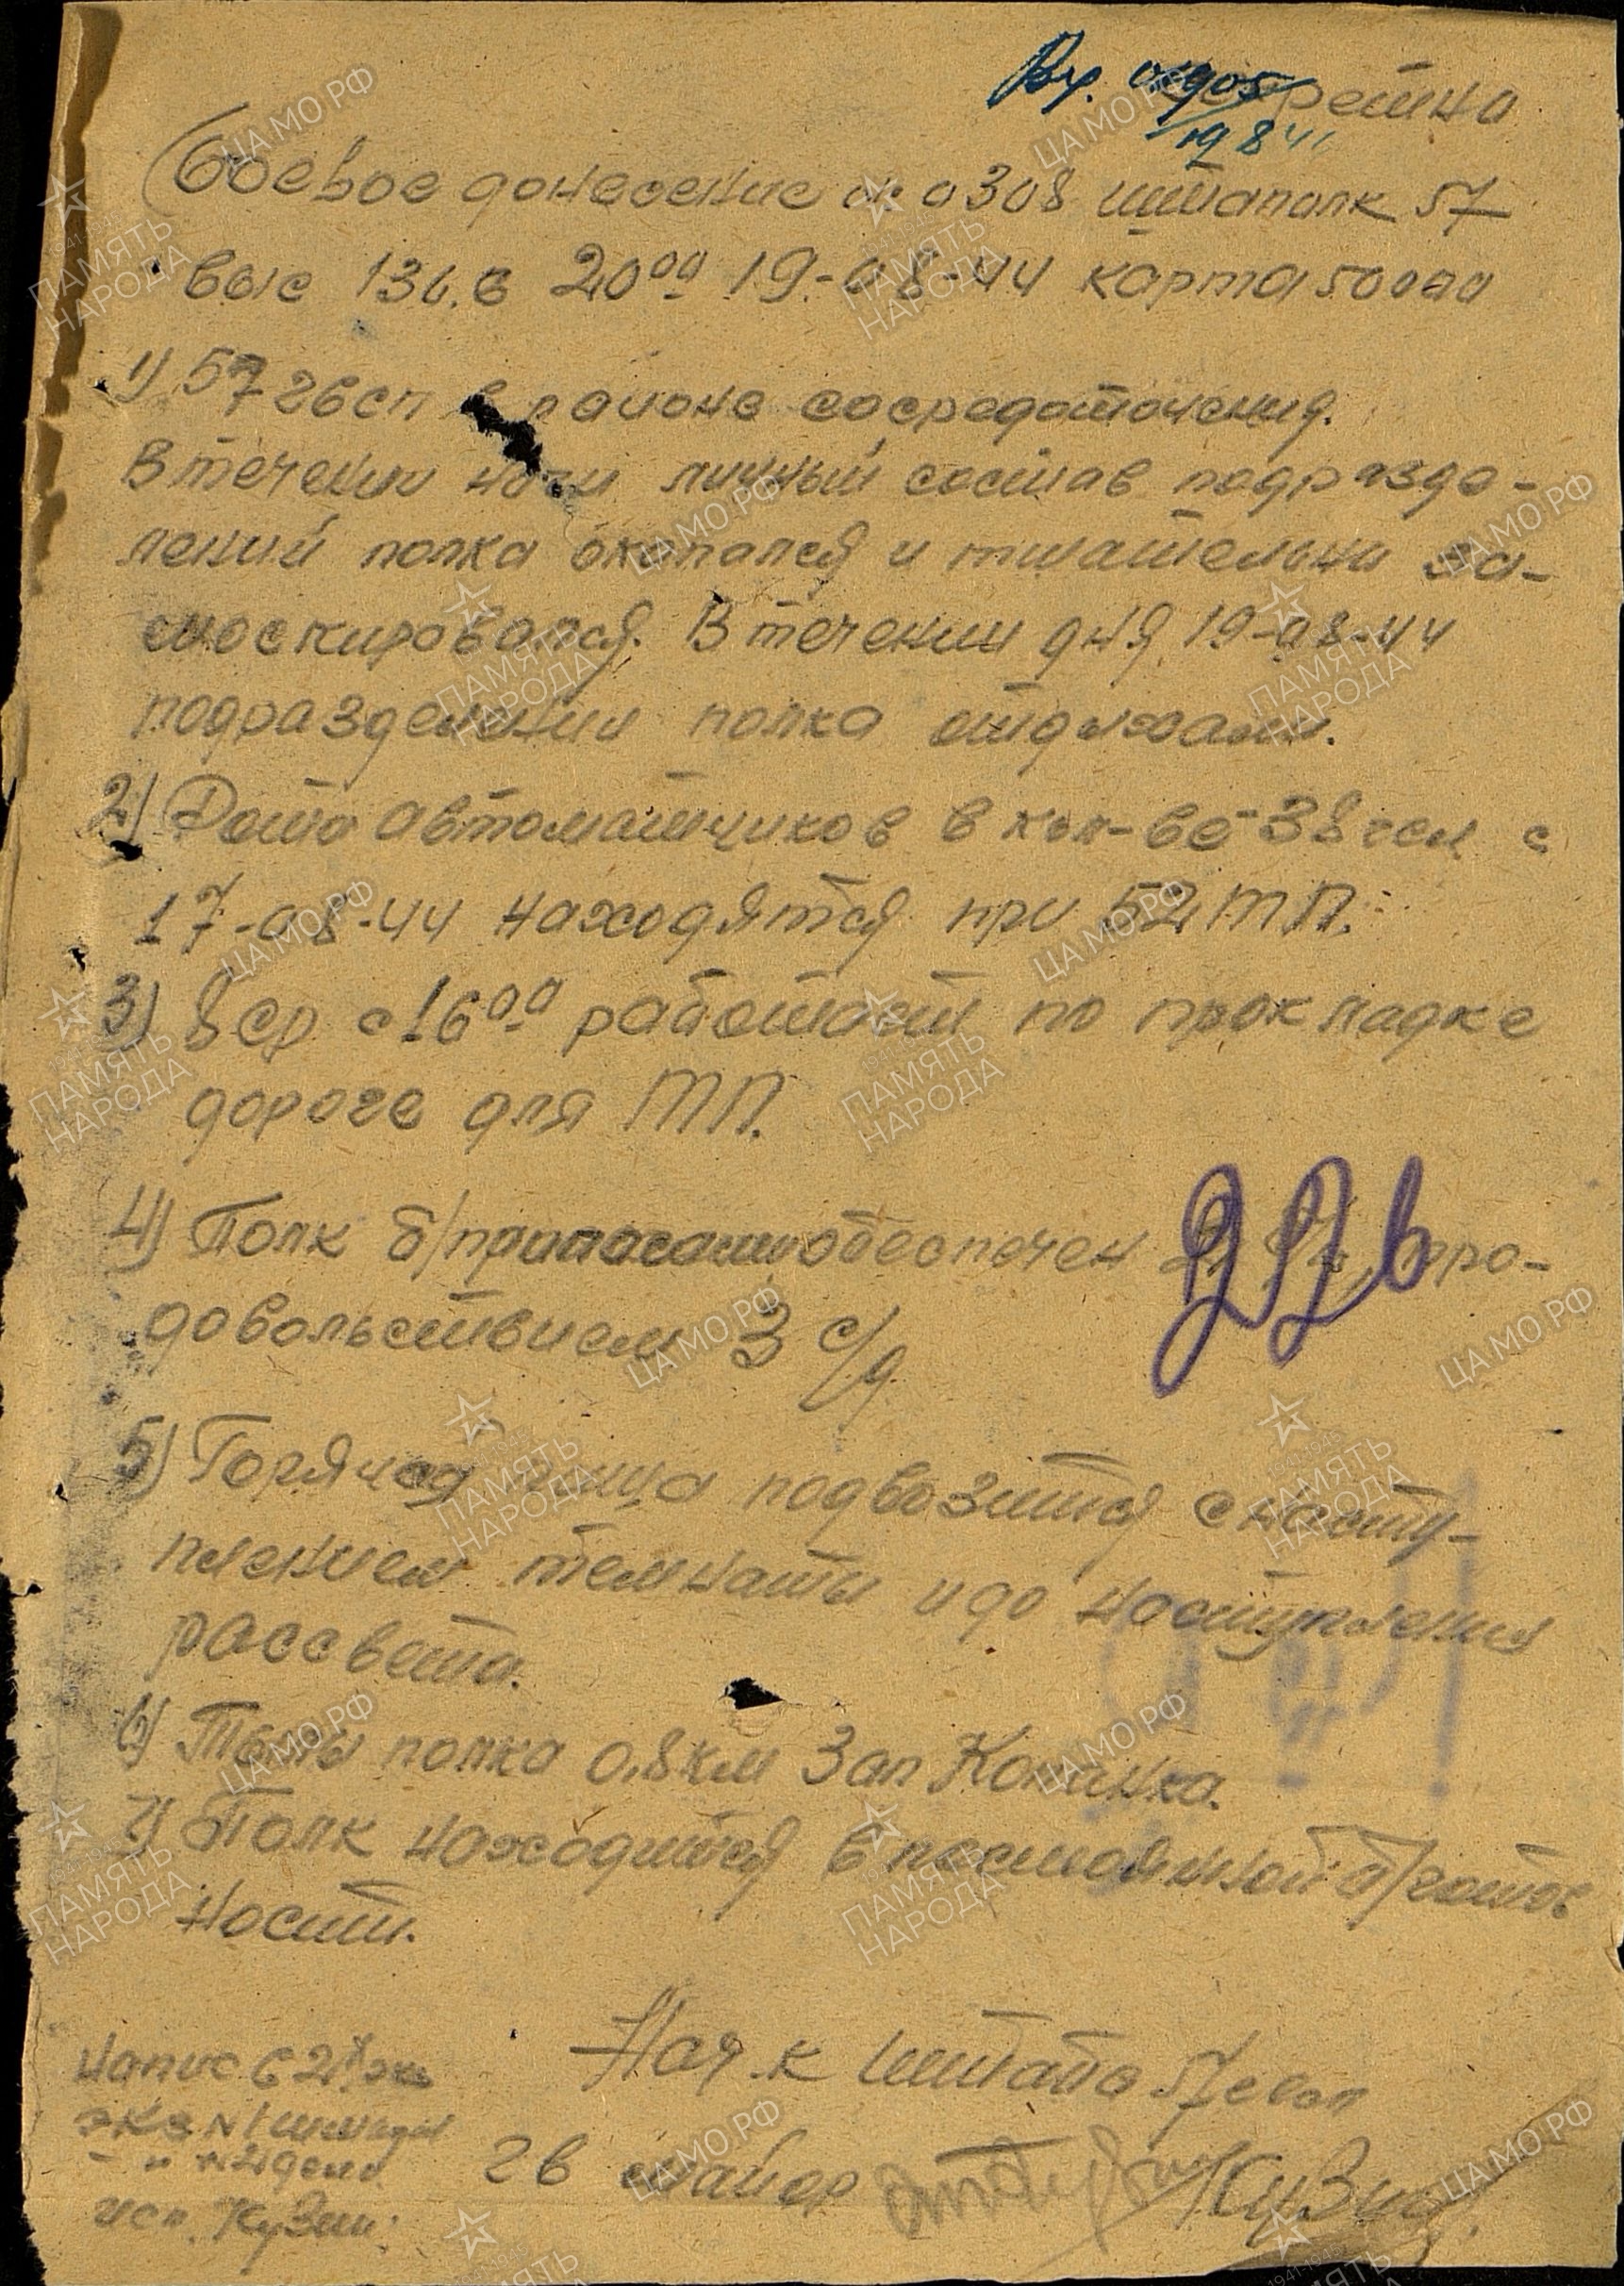 Вх. 01905
19 8 44
Секретно
Боевое донесение № 0308 штаполк 57
выс 136.6 20⁰⁰ 19.-08-44 карта 50000
1) 57 гвсп в районе сосредоточения.
В течении ночи личный состав подразде-
лений полка окопался и тщательно за-
маскировался. В течении дня 19-08-44
подразделения полка отдыхали.
2) Рота автоматчиков в кол-ве-38 чел с
17-08-44 находятся при 52 ТП.
3) 8 ср с 16⁰⁰ работает по прокладке
дороге для ТП.
4) Полк б/припасами обеспечен про-
226
довольствием 3 с/д.
5) Горячая пища подвозится с насту-
плением темноты и до наступления
рассвета.
6) Тылы полка 0,8 км Зап
7) Полк находится в постоянной б/готов
ност.
Нач-к штаба 57 гвсп
гв майор Кузин
Напис в 2х экз
экз №1 штадив
- " №2 дело
исп. Кузин.